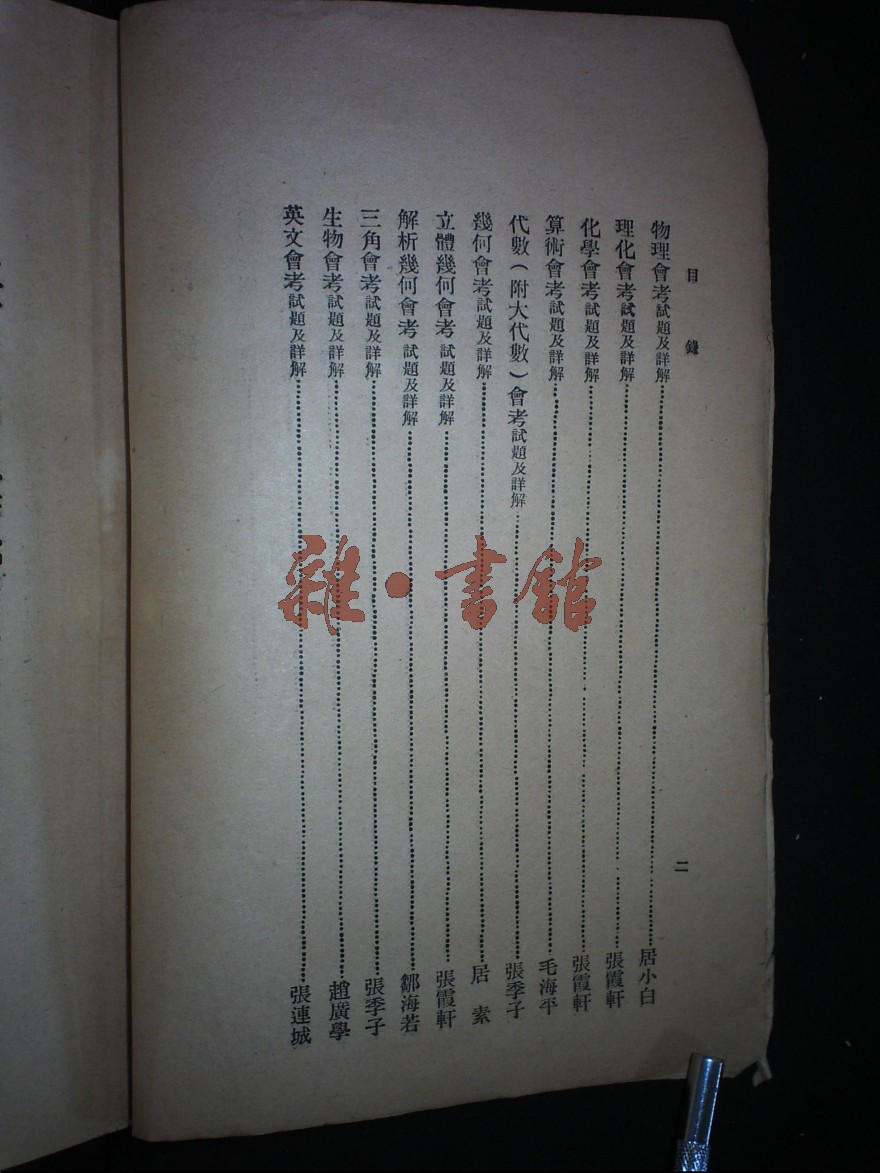 目錄
二
物理會考試題及詳解……居小白
理化會考試題及詳解……張霞軒
化學會考試題及詳解……張霞軒
算術會考試題及詳解……毛海平
代數(附大代數)會考試題及詳解……張季子
幾何會考試題及詳解……居素
立體幾何會考試題及詳解……張霞軒
解析幾何會考試題及詳解……鄒海若
三角會考試題及詳解……張季子
生物會考試題及詳解……趙廣學
英文會考試題及詳解……張連城
雜·書館